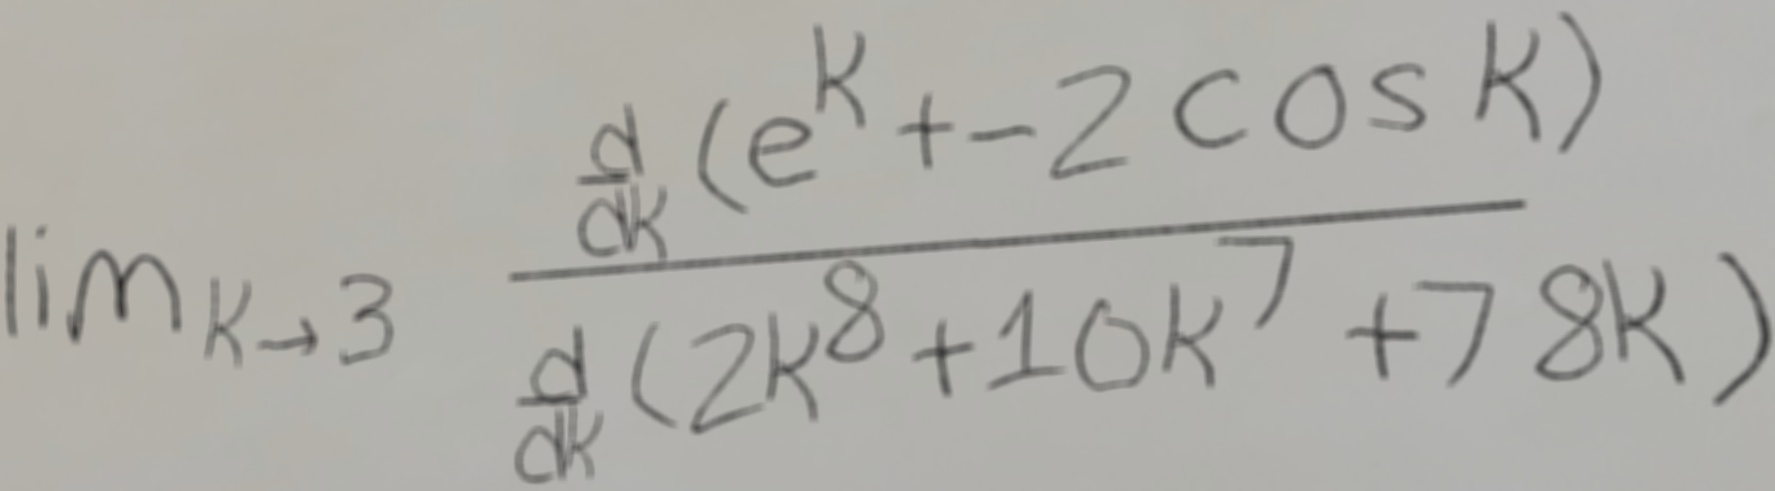 lim_{k→3} \frac{\frac{d}{dk}(e^k+-2cos k)}{\frac{d}{dk}(2k^8+10k^7+78k)}